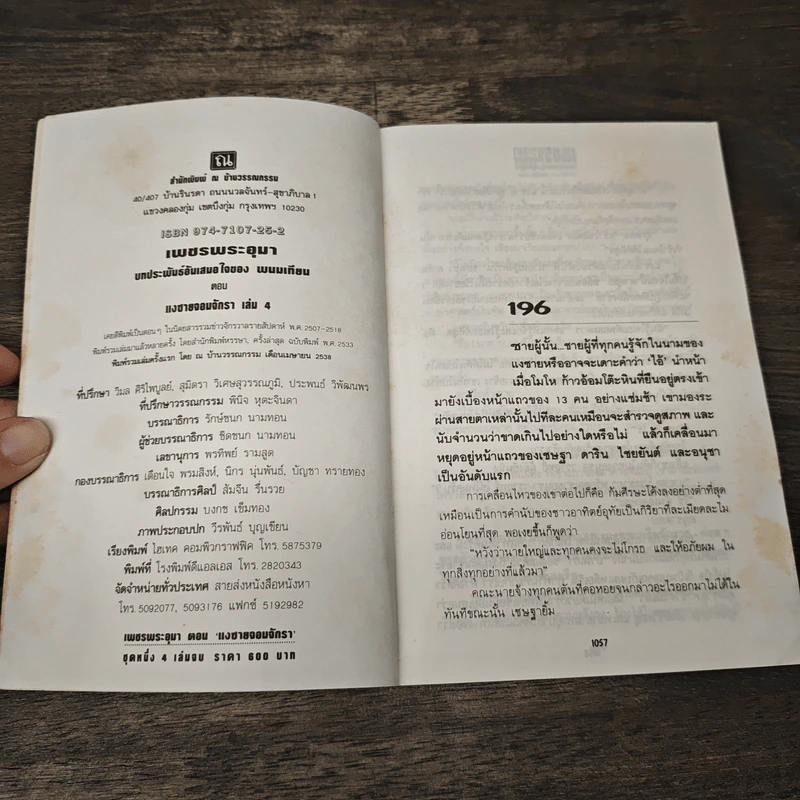 ณ
สำนักพิมพ์ ณ บ้านวรรณกรรม
40/407 บ้านรินรดา ถนนนวลจันทร์-สุขาภิบาล 1
แขวงคลองกุ่ม เขตบึงกุ่ม กรุงเทพฯ 10230
ISBN 974-7107-25-2
เพชรพระอุมา
บทประพันธ์อันเสนอใจของ พนมเทียน
ตอน
แงซายจอมจักรา เล่ม 4
เคยตีพิมพ์เป็นตอนๆ ในนิตยสารรวมข่าวจักรวาลรายสัปดาห์ พ.ศ.2507-2518
พิมพ์รวมเล่มมาแล้วหลายครั้ง โดยสำนักพิมพ์บรรหา, ครั้งล่าสุด ฉบับพิมพ์ พ.ศ.2533
พิมพ์รวมเล่มครั้งแรก โดย ณ บ้านวรรณกรรม เดือนเมษายน 2538
ที่ปรึกษา วิมล ศิริไพบูลย์, สุมิตรา วิเศษสุวรรณภูมิ, ประพนธ์ วิพัฒนพร
ที่ปรึกษาวรรณกรรม พินิจ หุตะจินดา
บรรณาธิการ รักษ์ชนก นามทอน
ผู้ช่วยบรรณาธิการ ชิดชนก นามทอน
เลขานุการ พรทิพย์ รามสูต
กองบรรณาธิการ เตือนใจ พรมสิงห์, นิกร นุ่นพันธ์, บัญชา ทรายทอง
บรรณาธิการศิลป์ สัมจีน รื่นรวย
ศิลปกรรม บงกช เข็มทอง
ภาพประกอบปก วีรพันธ์ บุญเชียน
เรียงพิมพ์ ไฮเทค คอมพิวกราฟฟิค โทร.5875379
พิมพ์ที่ โรงพิมพ์ดีแอลเอส โทร.2820343
จัดจำหน่ายทั่วประเทศ สายส่งหนังสือหนังหา
โทร.5092077, 5093176 แฟกซ์ 5192982
เพชรพระอุมา ตอน 'แงซายจอมจักรา'
ชุดหนึ่ง 4 เล่มจบ ราคา 600 บาท
196
"ชายผู้นั้น...ชายผู้ที่ทุกคนรู้จักในนามของ
แงซายหรืออาจจะเดาะคำว่า 'ไอ้' นำหน้า
เมื่อโมโห ก้าวอ้อมโต๊ะหินที่ยืนอยู่ตรงเข้า
มายังเบื้องหน้าแถวของ 13 คน อย่างแช่มช้า เขามองระ
ผ่านสายตาเหล่านั้นไปทีละคนเหมือนจะสำรวจดูสภาพ และ
นับจำนวนว่าขาดเกินไปอย่างใดหรือไม่ แล้วก็เคลื่อนมา
หยุดอยู่หน้าแถวของเชษฐา ดาริน ไชยยันต์ และอนุชา
เป็นอันดับแรก
การเคลื่อนไหวของเขาต่อไปก็คือ ก้มศีรษะโค้งลงอย่างต่ำที่สุด
เหมือนเป็นการคำนับของชาวอาทิตย์อุทัยเป็นกิริยาที่ละเมียดละไม
อ่อนโยนที่สุด พอเงยขึ้นก็พูดว่า
"หวังว่านายใหญ่และทุกคนคงจะไม่โกรธ และให้อภัยผม ใน
ทุกสิ่งทุกอย่างที่แล้วมา"
คณะนายจ้างทุกคนตันที่คอหอยจนกล่าวอะไรออกมาไม่ได้ใน
ทันทีขณะนั้น เชษฐายิ้ม
1057